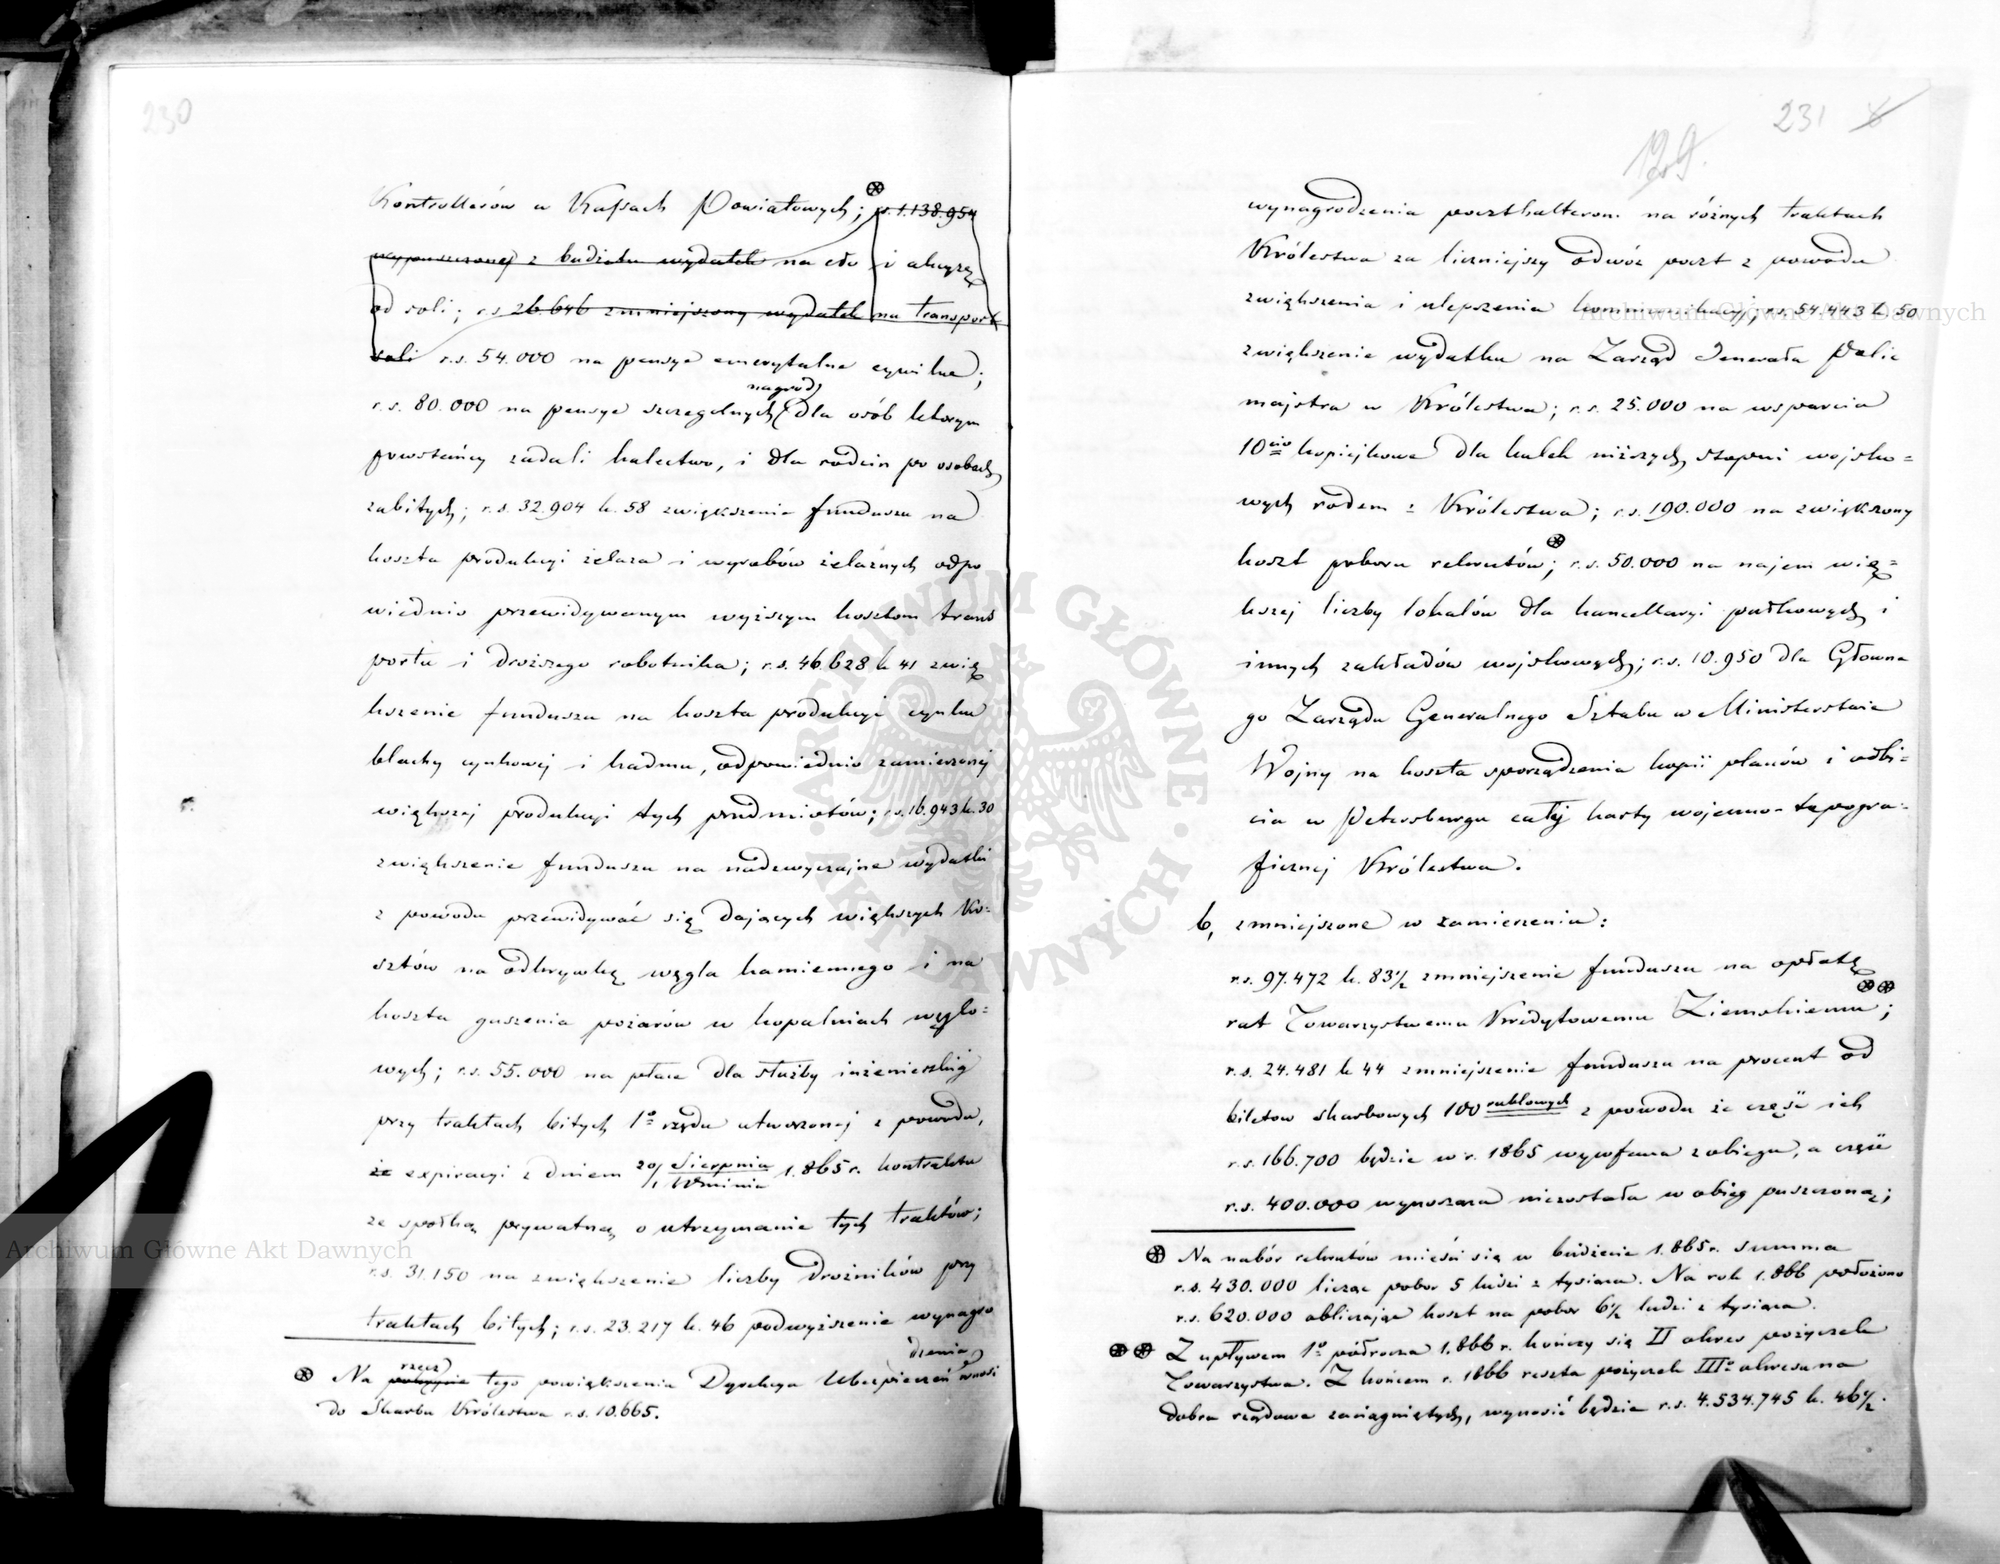 230
Kontrollerów w Kassach Powiatowych; ⊛ r.s. 1.138.954
wypuszczonej z budżetu wydatek na cło i akcyzę
od soli; r.s. 26.646 zmniejszony wydatek na transport
soli r.s. 54.000 na pensye emerytalne cywilne;
nagrod
r.s. 80.000 na pensye szczegolnych dla osób ktorym
powstańcy zadali kalectwo, i dla rodzin po osobach
zabitych; r.s. 32.904 k. 58 zwiększenie funduszu na
koszta produkcyi żelaza i wyrobów żelaznych odpo
wiednio przewidywanym wyższym kosztom trans
portu i droższego robotnika; r.s. 46.628 k 41 zwię
kszenie funduszu na koszta produkcyi cynku
blachy cynkowej i kadmu, odpowiednio zamierzonej
większej produkcyi tych przedmiotów; r.s. 16.943 k. 30
zwiększenie funduszu na nadzwyczajne wydatki
z powodu przewidywać się dających większych ko-
sztów na odkrywkę węgla kamiennego i na
koszta gaszenia pożarów w kopalniach węglo=
wych; r.s. 55.000 na płace dla służby inżenierskiej
przy traktach bitych 1º rzędu utworzonej z powodu,
że expiracyi z dniem 20/1 Sierpnia/Września 1.865 r. kontraktu
ze spółką prywatną o utrzymanie tych traktów;
r.s. 31.150 na zwiększenie liczby drożników przy
traktach bitych; r.s. 23.217 k. 46 podwyższenie wynagro
dzenia
⊛ Na pokrycie rzecz tego powiększenia Dyrekcya Ubezpieczeń wnosi
do Skarbu Królestwa r.s. 10.665.
231
129.
wynagrodzenia poczthalterom na różnych traktach
Królestwa za liczniejszy odwóz poczt z powodu
zwiększenia i ulepszenia kommunikacyj; r.s. 54.443 k 50
zwiększenie wydatku na Zarząd Jenerała Polic
majstra w Królestwie; r.s. 25.000 na wsparcia
10cio kopiejkowe dla kalek niższych stopni wojsko=
wych rodem z Królestwa; r.s. 190.000 na zwiększony
koszt poboru rekrutów ⊛; r.s. 50.000 na najem wię=
kszej liczby lokalów dla kancellaryi pułkowych i
innych zakładów wojskowych; r.s. 10.950 dla Główne
go Zarządu Generalnego Sztabu w Ministerstwie
Wojny na koszta sporządzenia kopii planów i odbi=
cia w Petersburgu całej karty wojenno-topogra-
ficznej Królestwa.
b, zmniejszone w zamierzeniu:
r.s. 97.472 k. 83½ zmniejszenie funduszu na opłatę
rat Towarzystwemu Kredytowemu Ziemskiemu ⊛⊛;
r.s. 24.481 k 44 zmniejszenie funduszu na procent od
biletow skarbowych 100 rublowych z powodu że część ich
r.s. 166.700 będzie w r. 1865 wycofana z obiegu, a część
r.s. 400.000 wynosząca niezostała w obieg puszczoną;
⊛ Na nabór rekrutów mieści się w budżecie 1.865 r. summa
r.s. 430.000 licząc pobor 5 ludzi z tysiąca. Na rok 1.866 położono
r.s. 620.000 obliczając koszt na pobor 6½ ludzi z tysiąca.
⊛⊛ Z upływem 1º półrocza 1.866 r. kończy się II okres pożyczek
Towarzystwa. Z końcem r. 1866 reszta pożyczek IIIº okresu na
dobra rządowe zaciągniętych, wynosić będzie r.s. 4.534.745 k. 46½.
Archiwum Główne Akt Dawnych
Archiwum Główne Akt Dawnych
ARCHIWUM GŁÓWNE · AKT DAWNYCH ·